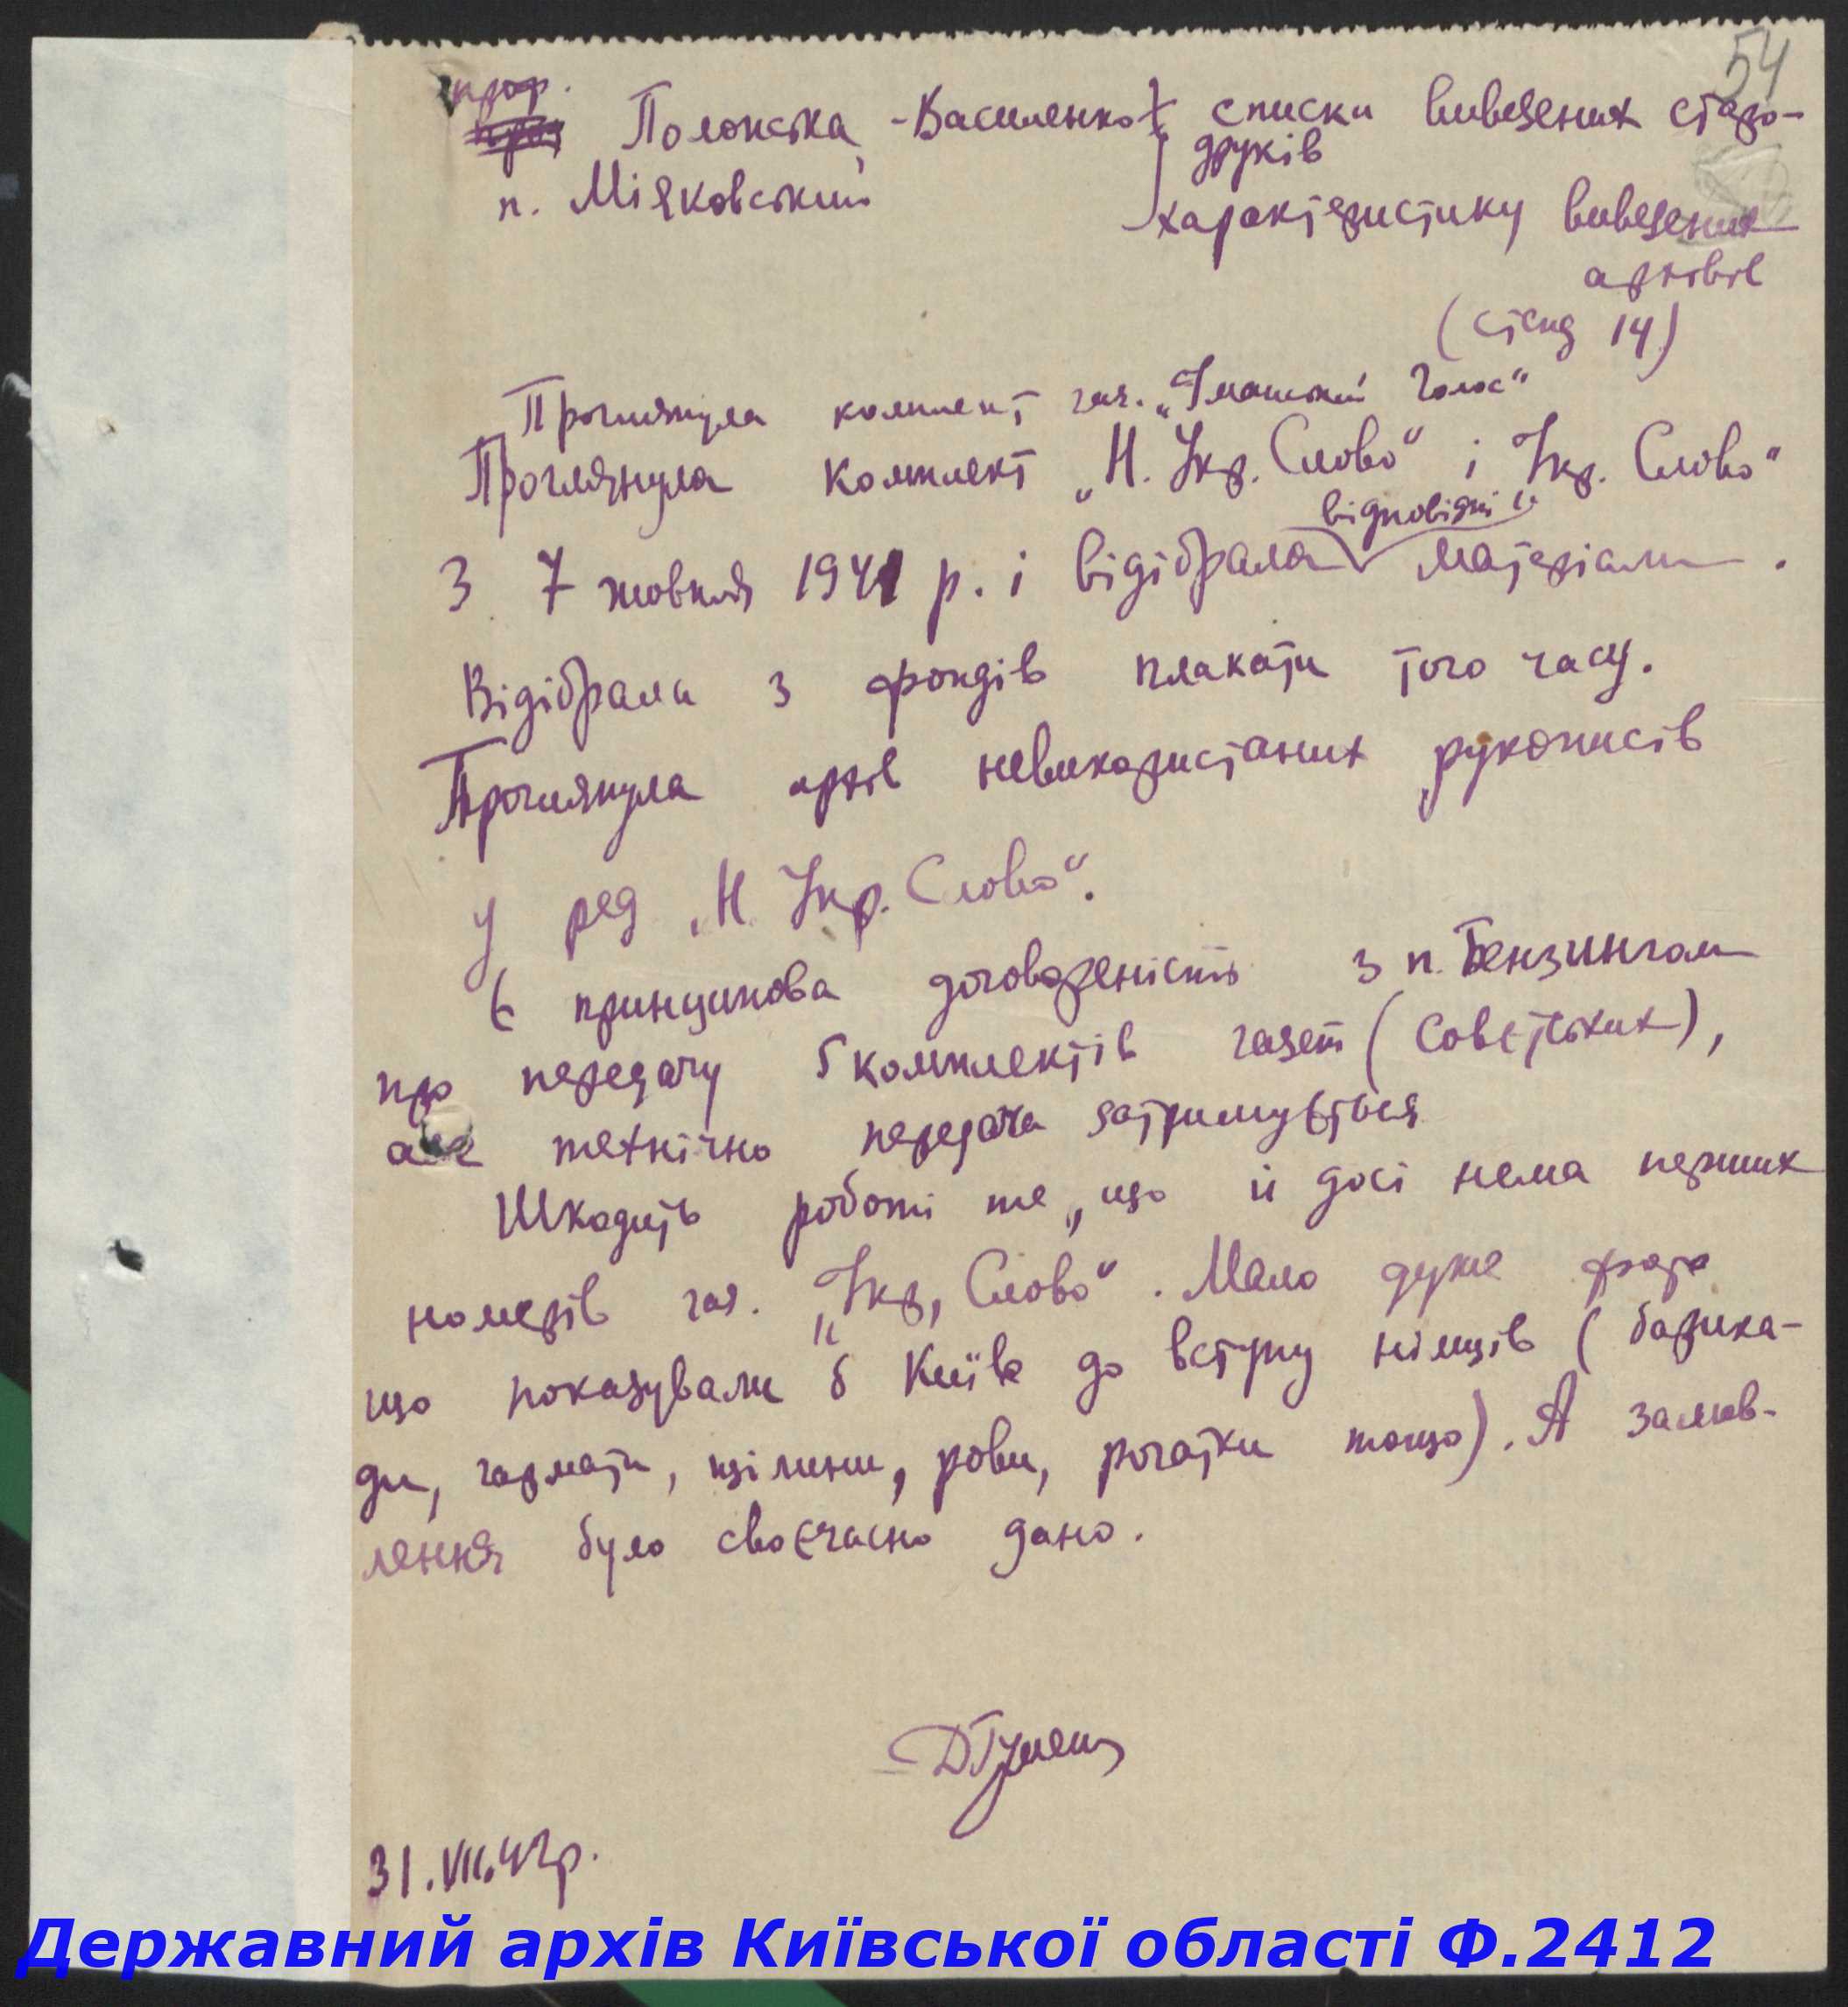 54
проф.
Полонська-Василенко } списки вивезених старо-
друків
п. Міяковський
характеристику вивезених
архівів
(стенд 14)
Проглянула комплект газ. „Уманський Голос“
Проглянула комплект „Н. Укр. Слово“ і Укр. Слово“
відповідні
З 7 жовтня 1941 р. і відібрала матеріали.
Відібрала з фондів плакати того часу.
Проглянула архів невикористаних рукописів
у ред „Н. Укр. Слово“.
Є принципова договореність з п. Бензингом
про передачу комплектів газет (совєтських),
але технічно передача затримується
Шкодить роботі те, що й досі нема перших
номерів газ. „Укр. Слово“. Мало дуже фото
що показували б Київ до вступу німців (барика-
ди, гармати, щілини, рови, рогатки тощо). А замов-
лення було своєчасно дано.
31.VII.42р.
Державний архів Київської області Ф.2412